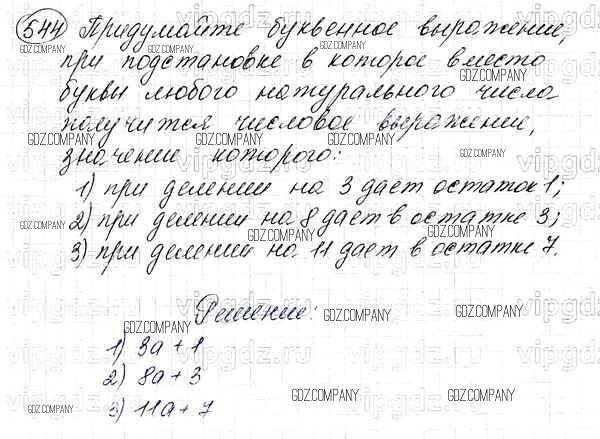 544 Придумайте буквенное выражение,
при подстановке в которое вместо
буквы любого натурального числа
получится числовое выражение,
значение которого:
1) при делении на 3 дает остаток 1;
2) при делении на 8 дает в остатке 3;
3) при делении на 11 дает в остатке 7.
Решение:
1) 3а + 1
2) 8а + 3
3) 11а + 7
GDZ.COMPANY
vipgdz.ru